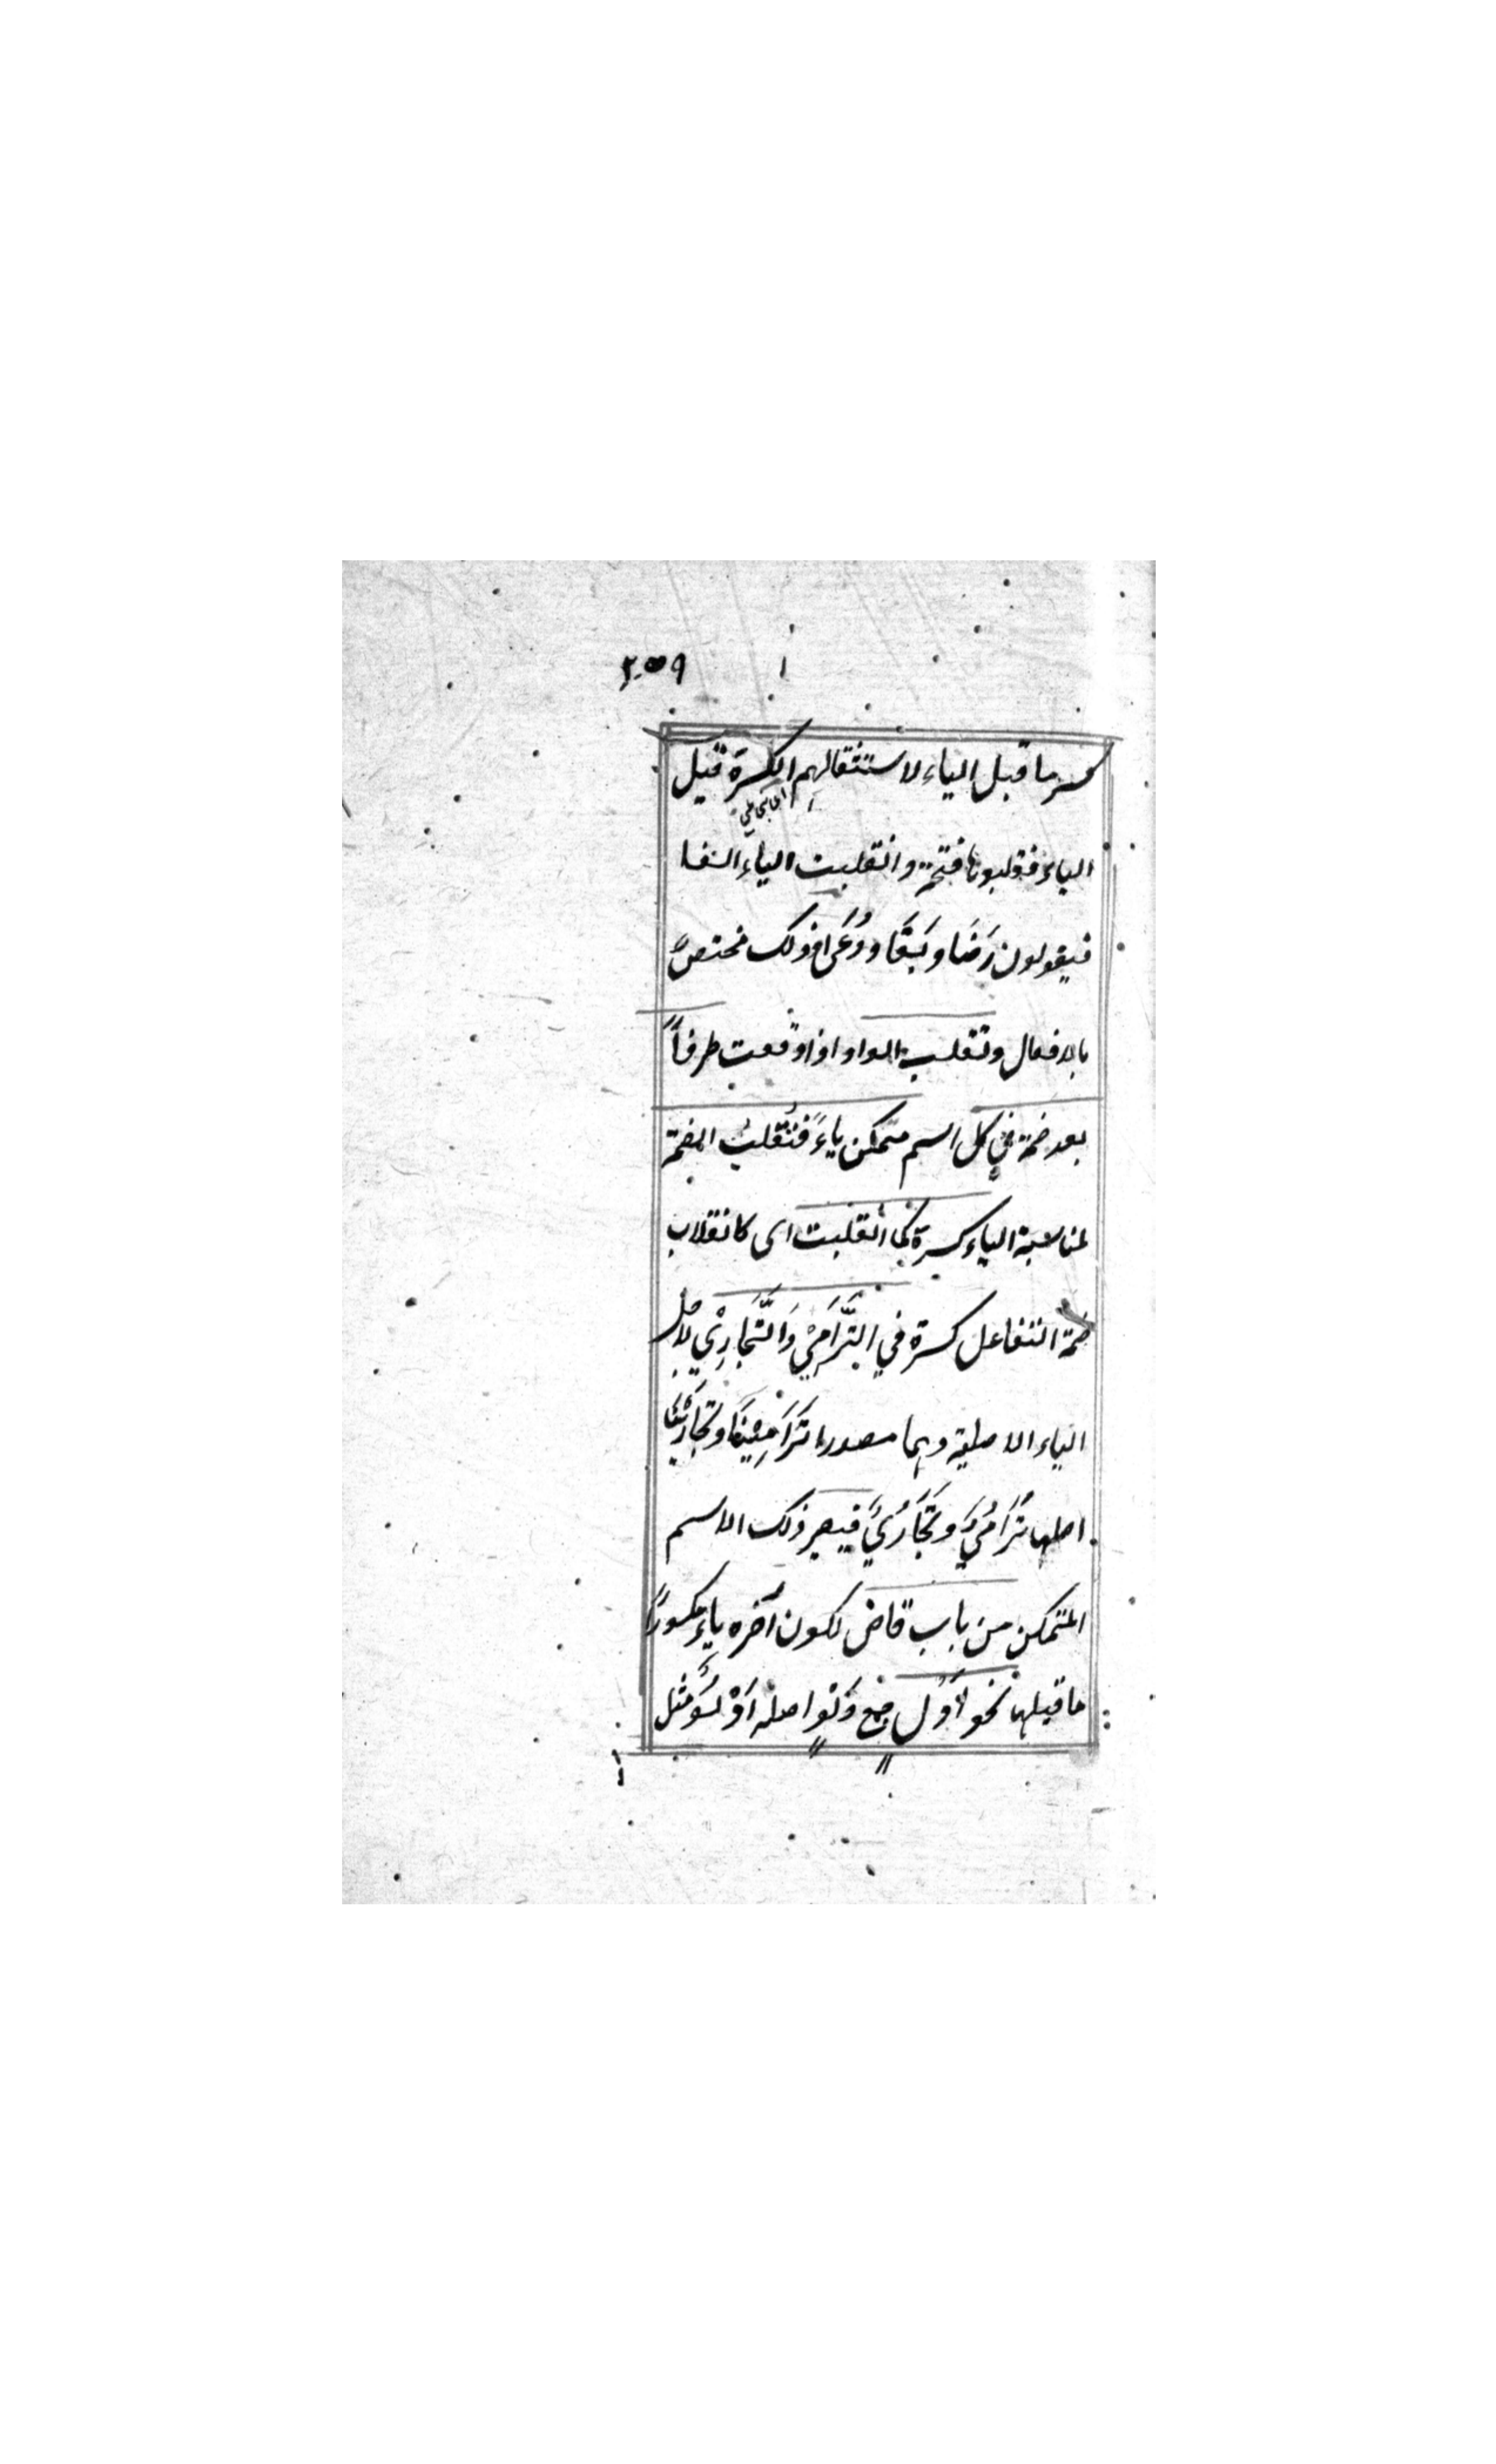 ٢٥٩
كسر ما قبل الياء لاستثقالهم الكسرة قبل
الياء فقلبوها فتحة وانقلبت الياء الفا
فيقولون رَضَا وبَقَا ودُعَى وذلك مختصٌ
بالافعال وتقلب الواو اذا وقعت طرفاً
بعد ضمة في كل اسم متمكن ياءً فتُقلبُ الضمة
لمناسبة الياء كسرة كما انقلبت اى كانقلاب
ضمة التفاعل كسرة في التَّرَامِيْ وَالتَّجَارِيْ لاجل
الياء الاصلية وهما مصدرا تَرَامَيْنَا وتَجَارَيْنَا
اصلها تَرَامُيٌ وتَجَارُيٌ فيصير ذلك الاسم
المتمكن من باب قاض لكون آخره ياءً مكسوراً
ما قبلها نحو اَدْلٍ جمع دَلْوٍ اصله اَدْلُوٌ مثل